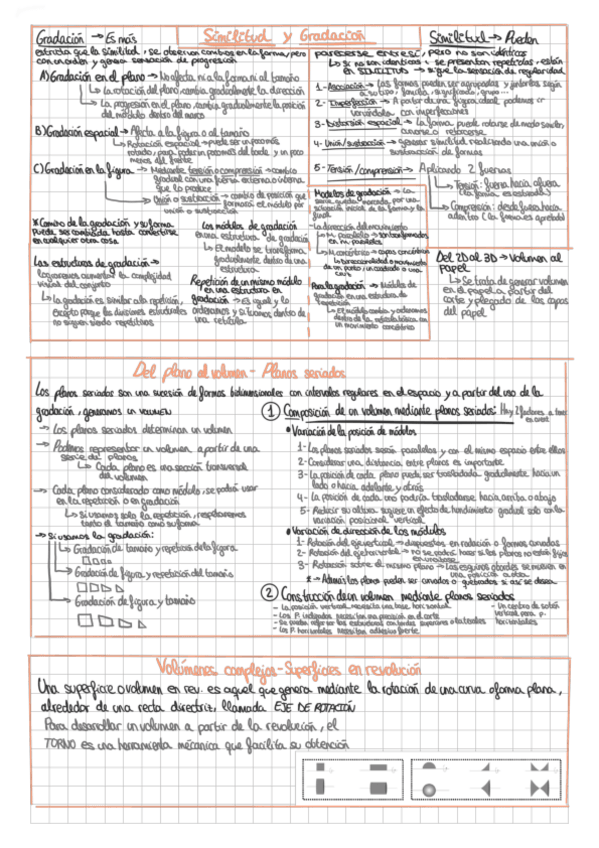 Similitud y Gradación
Gradación → Es más
estricta que la similitud, se observan cambios en la forma, pero
con un orden y genera sensación de progresión
A) Gradación en el plano → No afecta ni a la forma ni al tamaño
↳ La rotación del plano cambia gradualmente la dirección
↳ La progresión en el plano cambia gradualmente la posición
del módulo dentro del marco
B) Gradación espacial → Afecta a la figura o al tamaño
↳ Rotación espacial → puede ser un poco más
rotado, para poder un poco más del borde y un poco
menos del frente
C) Gradación en la figura → Mediante tensión o compresión → cambio
gradual con una fuerza externa o interna
que lo produce
↳ Unión o sustracción → cambio de posición que
formará el módulo por
unión o sustracción
* Camino de la gradación y su forma
Puede ser cambiada hasta convertirse
en cualquier otra cosa
Las estructuras de gradación →
lograremos aumentar la complejidad
visual del conjunto
↳ La gradación es similar a la repetición,
excepto porque las divisiones estructurales
no siguen siendo repetitivas
Los módulos de gradación
en una estructura de gradación
↳ El módulo se transforma
gradualmente dentro de una
estructura
Repetición de un mismo módulo
en una estructura en
gradación → Es igual y lo
ordenamos y situamos dentro de
una retícula
Similitud → Pueden
parecerse entre sí, pero no son idénticos
Lo si no son idénticos y se presentan repetidas, están
en SIMILITUD → sigue la sensación de regularidad
1- Asociación → Las formas pueden ser agrupadas y juntarlas según
a su tipo, familia, significado, grupo...
2- Imperfección → A partir de una figura ideal podemos ir
variándola con imperfecciones
3- Distorsión espacial → La forma puede rotarse de modo similar,
curvarse o retorcerse
4- Unión/sustracción → generar similitud realizando una unión o
sustracción de formas
5- Tensión/compresión → Aplicando 2 fuerzas
↳ Tensión: fuerza hacia afuera
(la forma es estirada)
↳ Compresión: desde fuera hacia
adentro (la forma es apretada)
Modelos de gradación → La
situación inicial de la forma y la
final
La dirección del movimiento
↳ M. paralelo → son transformados
en m. paralelos
↳ M. concéntrico → capas concéntricas
Para la gradación → Módulos de
gradación en una estructura de
repetición
↳ El módulo cambia y ordenamos
un movimiento concéntrico
Del 2D al 3D → Volumen al
papel
↳ Se trata de generar volumen
en el papel a partir del
corte y plegado de las capas
del papel
Del plano al volumen - Planos seriados
Los planos seriados son una sucesión de formas bidimensionales con intervalos regulares en el espacio y a partir del uso de la
gradación, generamos un VOLUMEN
→ Los planos seriados determinan un volumen
→ Podemos representar un volumen a partir de una
serie de planos
↳ Cada plano es una sección transversal
del volumen
→ Cada plano considerado como módulo, se podrá usar
en la repetición o en gradación
↳ Si usamos solo la repetición, repetiremos
tanto el tamaño como su forma
→ Si usamos la gradación:
↳ Gradación de tamaño y repetición de la figura
↳ Gradación de figura y repetición del tamaño
↳ Gradación de figura y tamaño
① Composición de un volumen mediante planos seriados: Hay 2 factores a tener
en cuenta
• Variación de la posición de módulos
1- Los planos seriados serán paralelos y con el mismo espacio entre ellos
2- Considerar una distancia entre planos es importante
3- La posición de cada plano puede ser trasladada gradualmente hacia un
lado o hacia adelante y atrás
4- La posición de cada uno podría trasladarse hacia arriba o abajo
5- Reducir su altura sugiere un efecto de hundimiento gradual solo en la
variación posicional vertical
• Variación de dirección de los módulos
1- Rotación del eje vertical → dispuestos en rotación o formas curvadas
2- Rotación del eje horizontal → no se podrá hacer si los planos no están fijos
en una base
3- Rotación sobre el mismo plano → Las esquinas o bordes se mueven en
una posición a otra
* → Además los planos pueden ser curvados o quebrados si así se desea
② Construcción de un volumen mediante planos seriados
- La posición vertical necesita una base horizontal
- Los P. inclinados necesitan una precisión en el corte
- Los P. horizontales necesitan adhesivo fuerte
vertical para p.
horizontales
Volúmenes complejos - Superficies en revolución
Una superficie o volumen en rev. es aquel que genera mediante la rotación de una curva o forma plana,
alrededor de una recta directriz, llamada EJE DE ROTACIÓN
Para desarrollar un volumen a partir de la revolución, el
TORNO es una herramienta mecánica que facilita su obtención